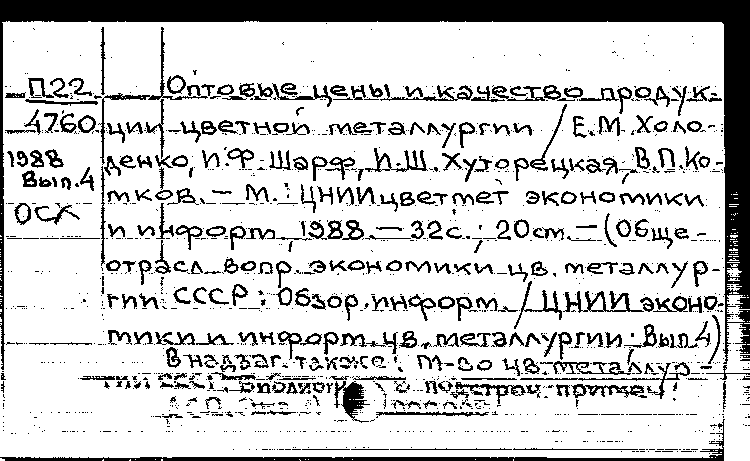 П22 Оптовые цены и качество продук-
4760 ции цветной металлургии / Е.М. Холо-
1988 денко, И.Ф. Шарф, И.Ш. Хуторецкая, В.П. Ко-
Вып.4 тков. – М.: ЦНИИцветмет экономики
ОСХ и информ., 1988. – 32с.; 20 см. – (Обще-
отрасл. вопр. экономики цв. металлур-
гии СССР: Обзор. информ. / ЦНИИ эконо-
мики и информ. цв. металлургии; Вып.4)
В надзаг. также: М-во цв. металлур-
гии СССР. Библиогр. в подстроч. примеч.